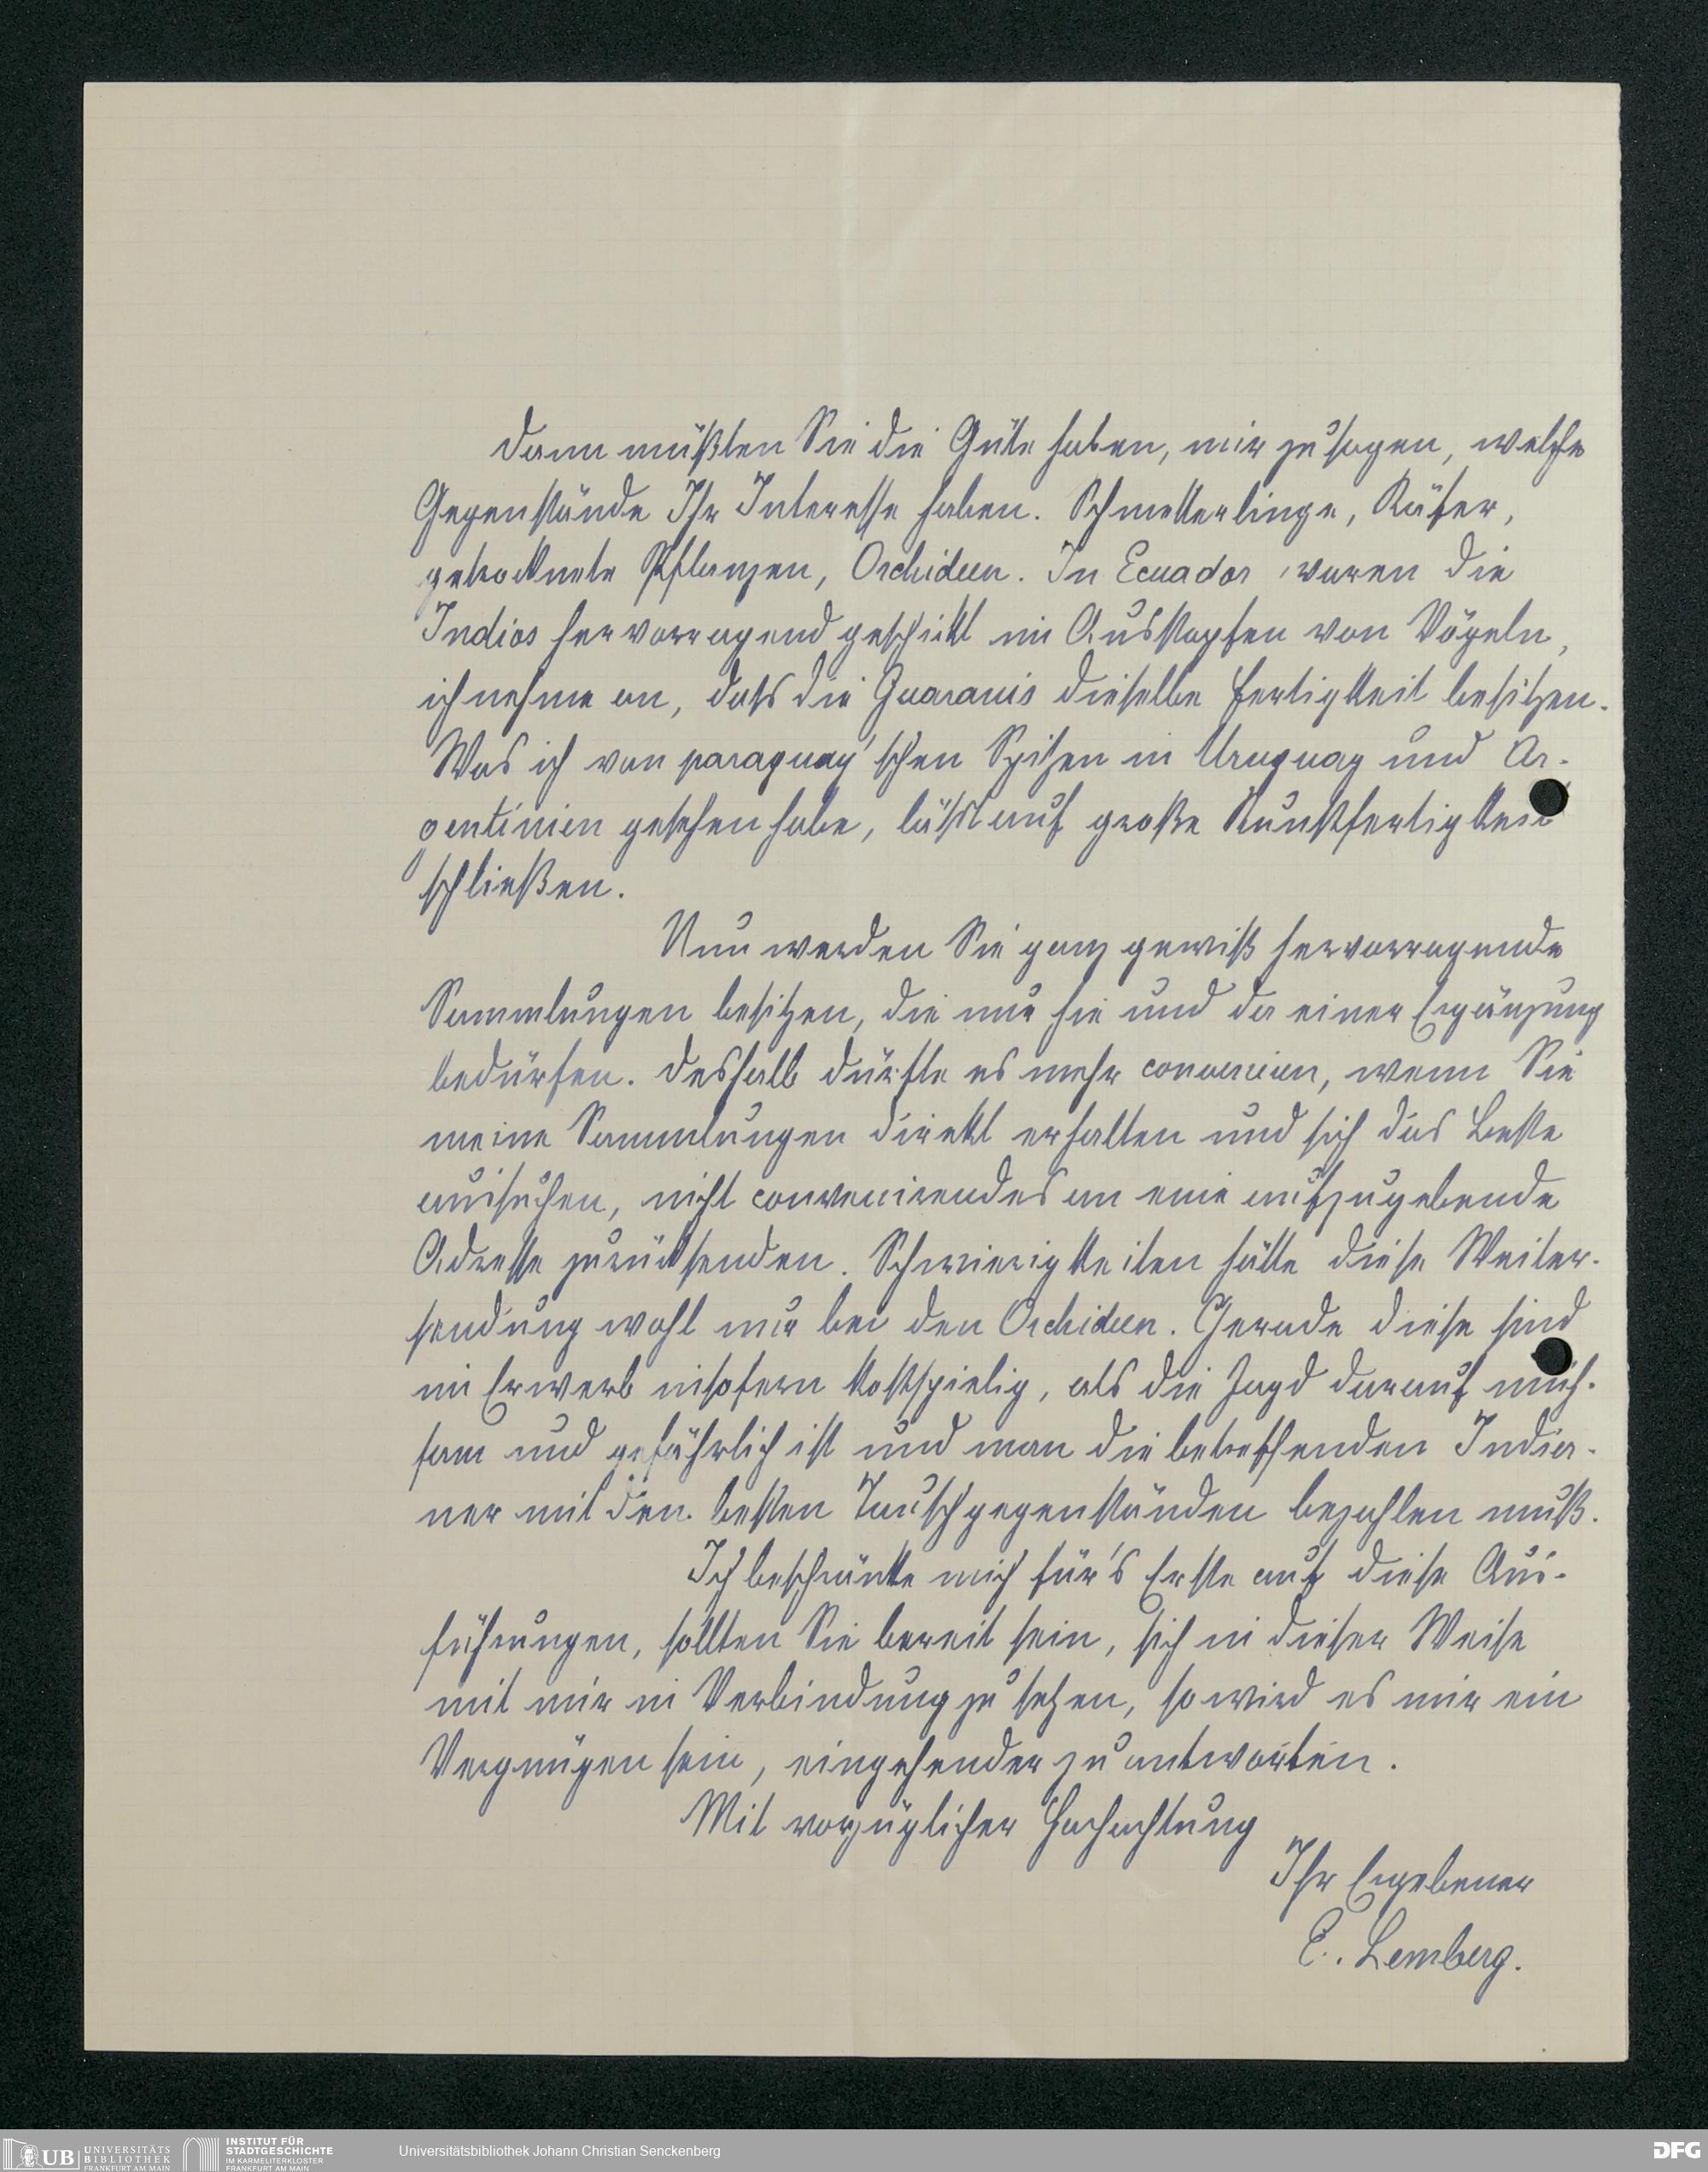 Dann müßten Sie die Güte haben, mir zu sagen, welche
Gegenstände Ihr Interesse haben. Schmetterlinge, Käfer,
getrocknete Pflanzen, Orchideen. In Ecuador waren die
Indios hervorragend geschickt im Ausstopfen von Vögeln,
ich nehme an, dass die Guaranis dieselbe Fertigkeit besitzen.
Was ich von paraguay'schen Spitzen in Uruguay und Ar-
gentinien gesehen habe, lässt auf große Kunstfertigkeit
schließen.
Nun werden Sie ganz gewiß hervorragende
Sammlungen besitzen, die nur hie und da einer Ergänzung
bedürfen. Deshalb dürfte es mehr convenieren, wenn Sie
meine Sammlungen direkt erhalten und sich das Beste
aussuchen, nicht convenirendes an eine aufzugebende
Adresse zurücksenden. Schwierigkeiten hätte diese Weiter-
sendung wohl nur bei den Orchideen. Gerade diese sind
im Erwerb insofern kostspielig, als die Jagd darauf müh-
sam und gefährlich ist und man die betreffenden India-
ner mit den besten Tauschgegenständen bezahlen muß.
Ich beschränke mich für's Erste auf diese Aus-
führungen, sollten Sie bereit sein, sich in dieser Weise
mit mir in Verbindung zu setzen, so wird es mir ein
Vergnügen sein, eingehender zu antworten.
Mit vorzüglicher Hochachtung
Ihr Ergebener
E. Lemberg.
UB UNIVERSITÄTS
BIBLIOTHEK
FRANKFURT AM MAIN
INSTITUT FÜR
STADTGESCHICHTE
IM KARMELITERKLOSTER
FRANKFURT AM MAIN
Universitätsbibliothek Johann Christian Senckenberg
DFG